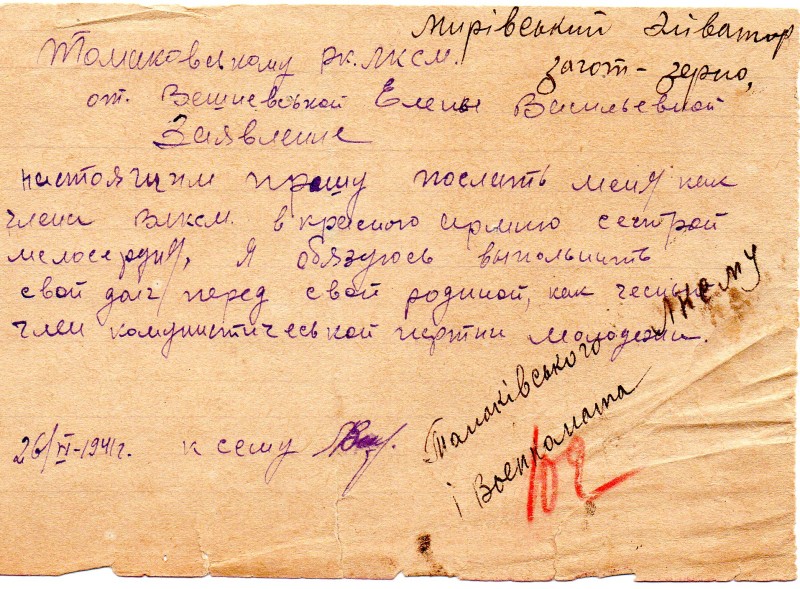 МирівськийЭйватор
загот-зерно,
Томаковському рк. ЛКСМ.
от. Вешневськой Елены Васильевной
Заявление
настоящим прошу послать меня как
члена ВЛКСМ. в красного армию сестрой
мелосердия, я обязуюсь выполнить
свой долг перед свой родиной, как честный
член комунистичеськой партии молодежи.
26/VI-1941г. к сему
Томаківського
і Военкомата
102